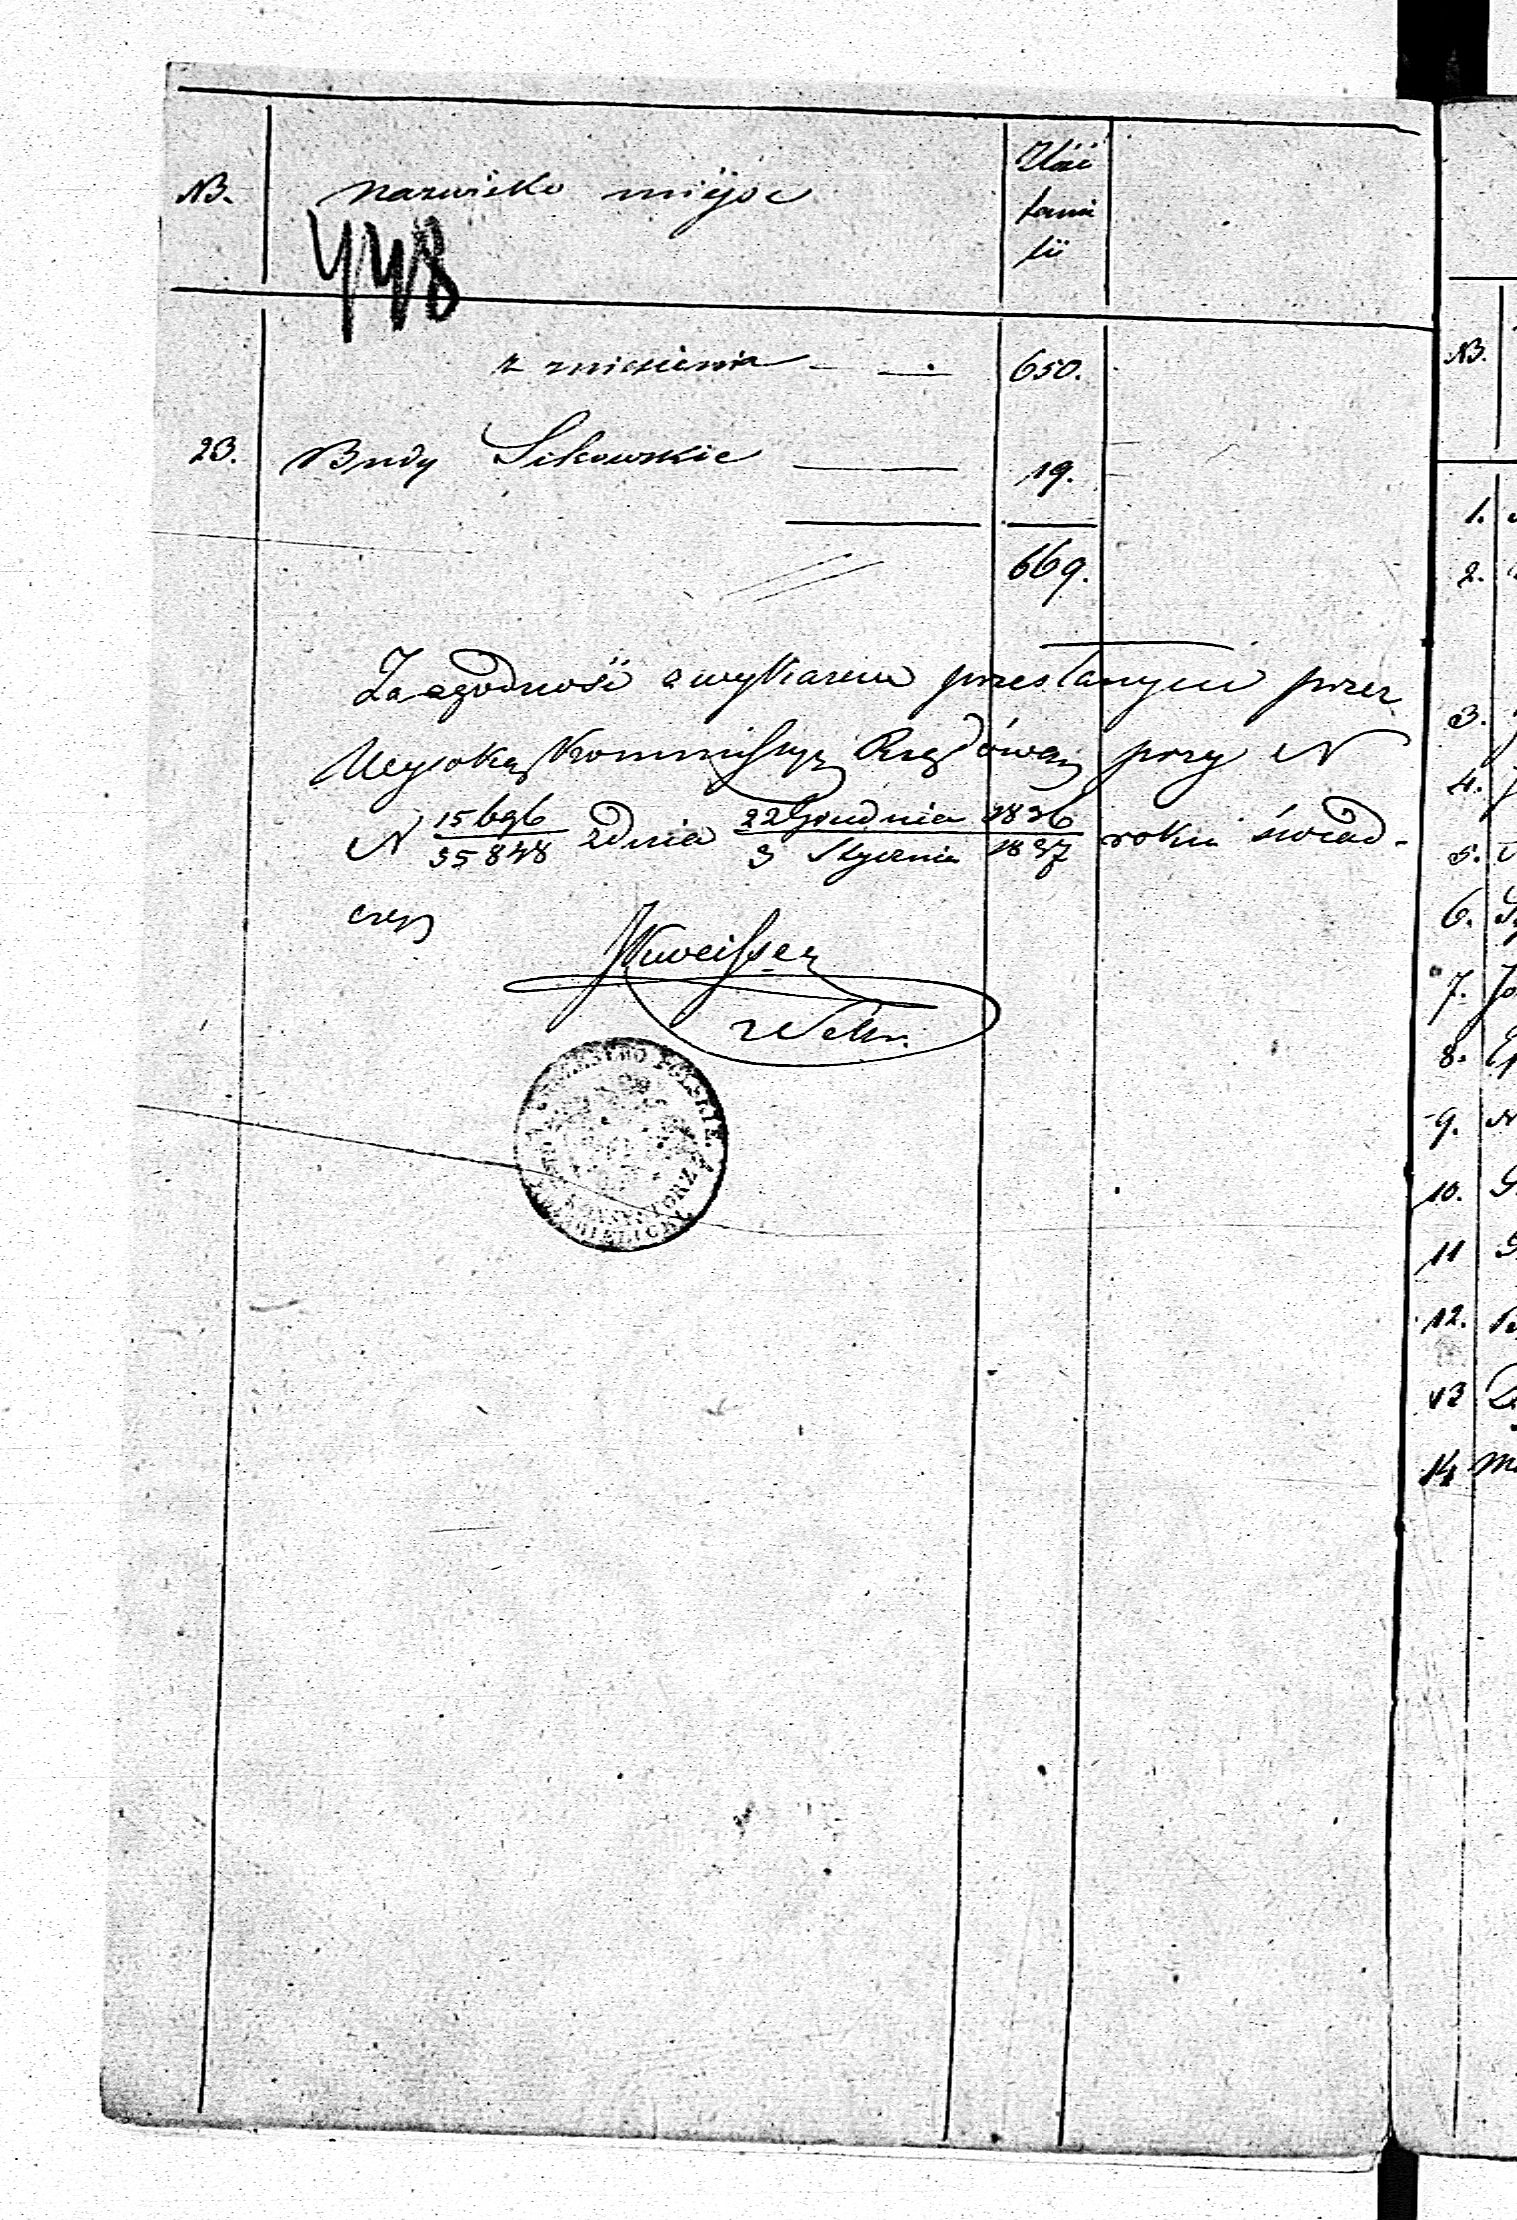 NB.
nazwisko miejsc
Ilość
fami
lii
448
z zniesienia
650.
23.
Budy Sikowskie
19.
669.
Za zgodność z wykazem przesłanym przez
Wysoką Kommissyą Rządową przy N
N 15696/35848 z dnia 22 Grudnia 1836/3 Stycznia 1837 roku świad-
czę
KRÓLESTWO POLSKIE.
NB.
1.
2.
3.
4.
5.
6.
7.
8.
9.
10.
11
12.
13
14